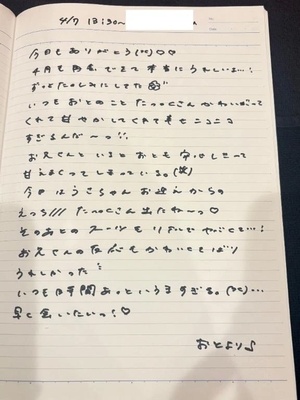 4/7 13:30~
今日もありがとう(^^)♡♡
4月も
本当にうれしい…!
ずっとたのしみにしてた
いつもおとのこと たっっくさん かわいがって
くれて甘やかしてくれて もニコニコ
すぎるんだ〜っ!!
お兄さんといると おとも 安心しきって
甘えまくってしまっている。(笑)
今日はうさちゃんお迎えからの
えっち/// たっっくさん出たね〜っ♡
そのあとの
お兄さんの反応もかわいくてばり
うれしかった
いつも時間あっという間すぎる。
早く会いたいっ!♡
おとより♪